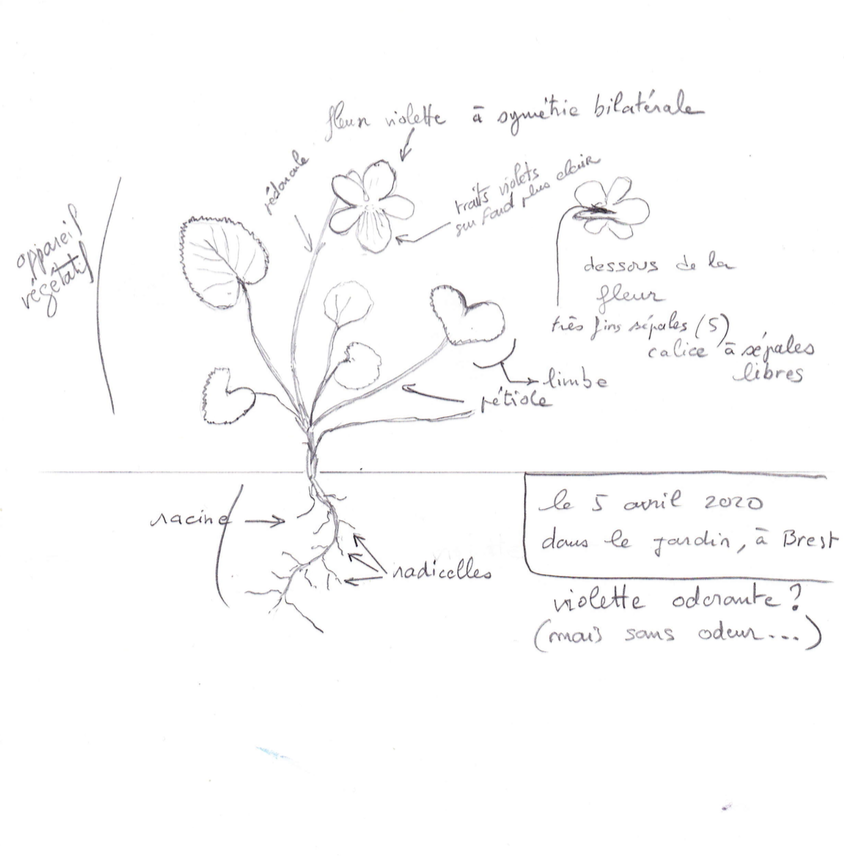 fleur violette à symétrie bilatérale
pédoncule
traits violets
sur fond plus clair
appareil
végétatif
dessous de la
fleur
très fins sépales (5)
calice à sépales
libres
limbe
pétiole
racine
radicelles
le 5 avril 2020
dans le jardin, à Brest
violette odorante ?
(mais sans odeur...)